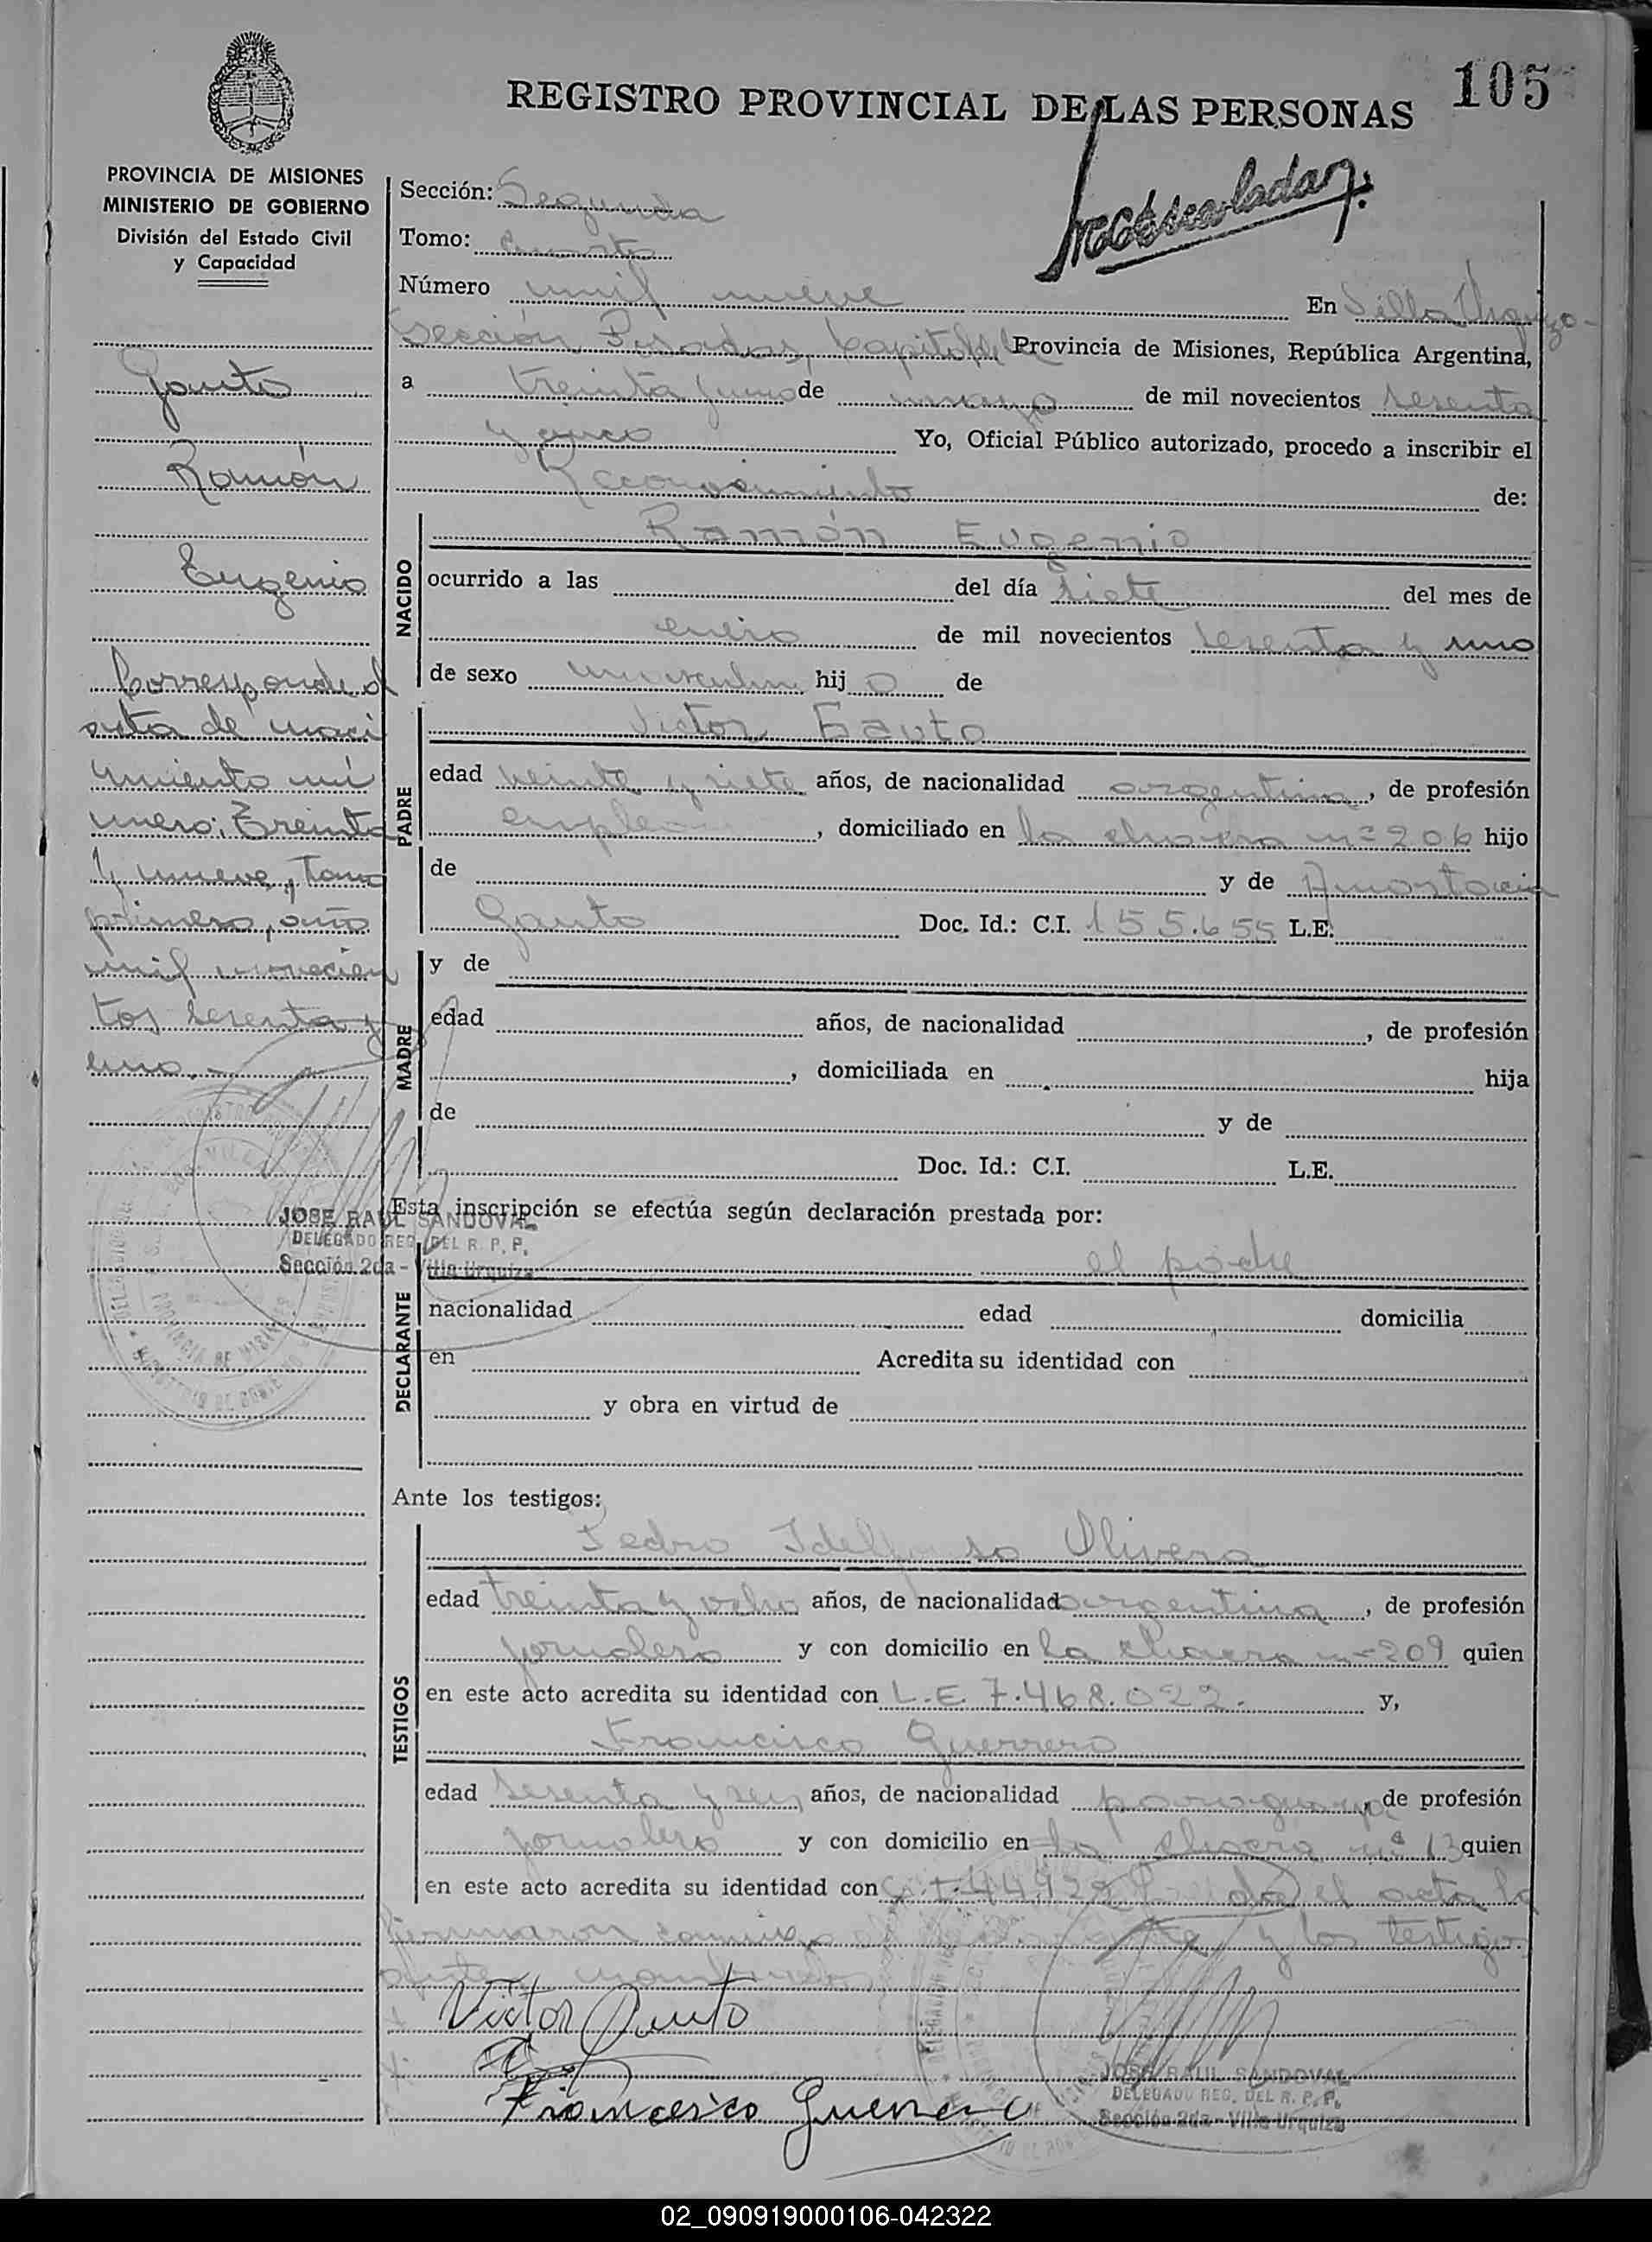 105
REGISTRO PROVINCIAL DE LAS PERSONAS
PROVINCIA DE MISIONES
MINISTERIO DE GOBIERNO
División del Estado Civil
y Capacidad
Gauto
Ramón
Eugenio
Corresponde al
acta de naci
miento nú
mero: Treinta
y nueve, Tomo
primero, año
mil novecien
tos sesenta y
uno.-
Sección: Segunda
Tomo: Cuarto
Número mil nueve En Villa Urquiza-
Sección Posadas, Capital, Provincia de Misiones, República Argentina,
a treinta y uno de mayo de mil novecientos sesenta
y cinco Yo, Oficial Público autorizado, procedo a inscribir el
Reconocimiento de:
NACIDO
Ramón Eugenio
ocurrido a las del día siete del mes de
enero de mil novecientos sesenta y uno
de sexo masculino hij o de
PADRE
Victor Gauto
edad veinte y siete años, de nacionalidad argentina, de profesión
empleado, domiciliado en la chacra nº 206 hijo
de y de Anastacia
Gauto Doc. Id.: C.I. 155.655 L.E.
MADRE
y de
edad años, de nacionalidad , de profesión
, domiciliada en hija
de y de
Doc. Id.: C.I. L.E.
Esta inscripción se efectúa según declaración prestada por:
JOSE RAUL SANDOVAL
DELEGADO REG. DEL R. P. P.
Sección 2da - Villa Urquiza
DECLARANTE
el padre
nacionalidad edad domicilia
en Acredita su identidad con
y obra en virtud de
Ante los testigos:
TESTIGOS
Pedro Idelfonso Olivera
edad treinta y ocho años, de nacionalidad argentina, de profesión
jornalero y con domicilio en la chacra nº 209 quien
en este acto acredita su identidad con L.E. 7.468.022. y,
Francisco Guerrero
edad sesenta y seis años, de nacionalidad paraguaya, de profesión
jornalero y con domicilio en la chacra nº 13 quien
en este acto acredita su identidad con el acta la
firmaron conmigo y los testigos
Victor Gauto
Francisco Guerrero
JOSE RAUL SANDOVAL
DELEGADO REG. DEL R. P. P.
Sección 2da - Villa Urquiza
02_090919000106-042322